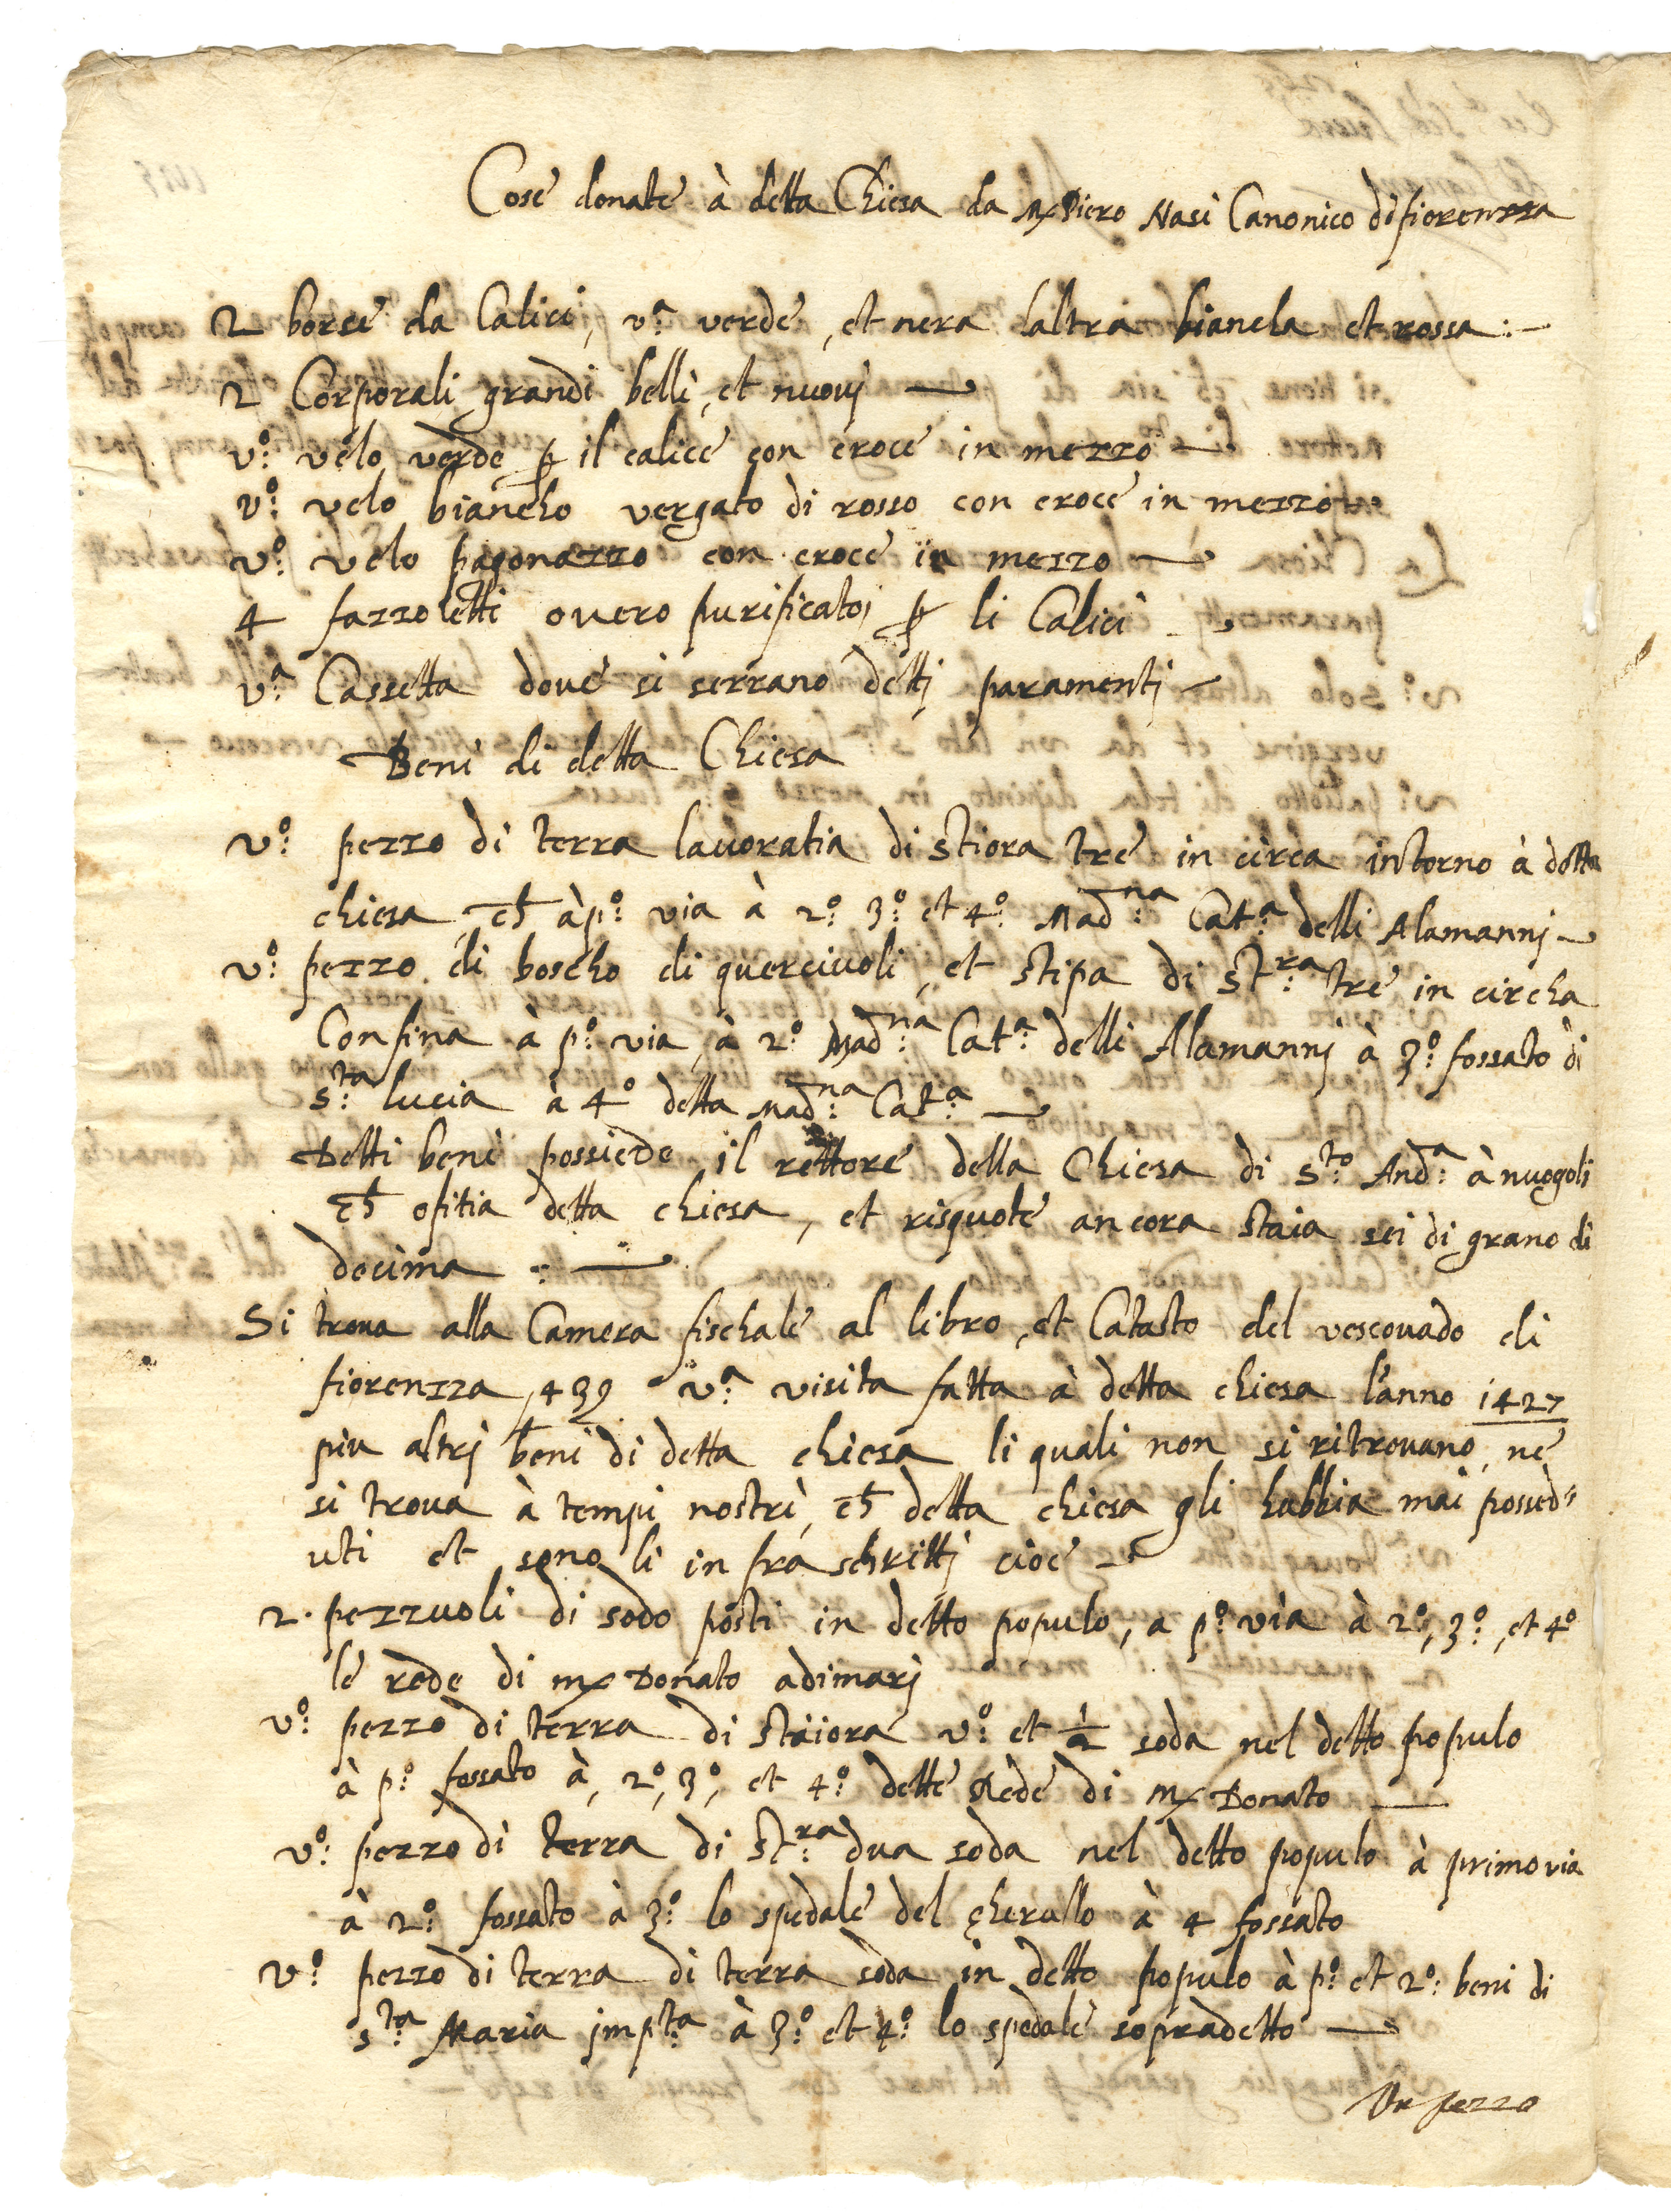 Cose donate à detta Chiesa da Mr Piero Nasi Canonico di fiorenzza
2 borse da Calici, v.ª verde, et nera laltra biancha et rossa :-
2 Corporali grandi belli, et nuovj —
v.º velo verde p il calice con croce in mezzo —
v.º velo biancho vergato di rosso con croce in mezzo
v.º velo pagonazzo con croce in mezzo —
4 fazzoletti overo purificatoj p li Calici —
v.ª Cassetta dove si serrano dettj paramentj —
Beni di detta Chiesa
v.º pezzo di terra lavoratia di stiora tre in circa intorno à detta
chiesa, ch à p.º via à 2.º 3.º et 4.º Mad.na Cat.ª delli Alamannj —
v.º pezzo di boscho di quercivoli, et stipa di st.ra tre in circha
Confina à p.º via, à 2.º Mad.na Cat.ª delli Alamannj à 3.º fossato di
S.ta lucia à 4º detta Mad.na Cat.ª —
Detti beni possiede il rettore della Chiesa di S.to And.ª à nuogoli
ch ofitia detta chiesa, et risquote ancora staia sei di grano di
decima : —
Si trova alla Camera fischale al libro, et Catasto del vescovado di
fiorenzza, 439 v.ª visita fatta à detta chiesa l'anno 1427
piu altrj beni di detta chiesa li quali non si ritrovano, ne
si trova à tempi nostri, ch detta chiesa gli habbia mai possed=
uti et sono li in fra schrittj cioe —
2. pezzuoli di sodo posti in detto populo, a p.º via à 2.º, 3.º, et 4º
le rede di mr Donato adimarj
v.º pezzo di terra di staiora v.º et ½ soda nel detto populo
à p.º fossato à, 2.º, 3º, et 4.º dette Rede di mr Donato —
v.º pezzo di terra di st.ra dua soda nel detto populo à primo via
à 2.º fossato à 3.º lo spedale del cherullo à 4 fossato
v.º pezzo di terra di terra soda in detto populo à p.º et 2.º beni di
S.ta Maria jmp.ta à 3.º et 4.º lo spedale sopradetto —
Un pezzo